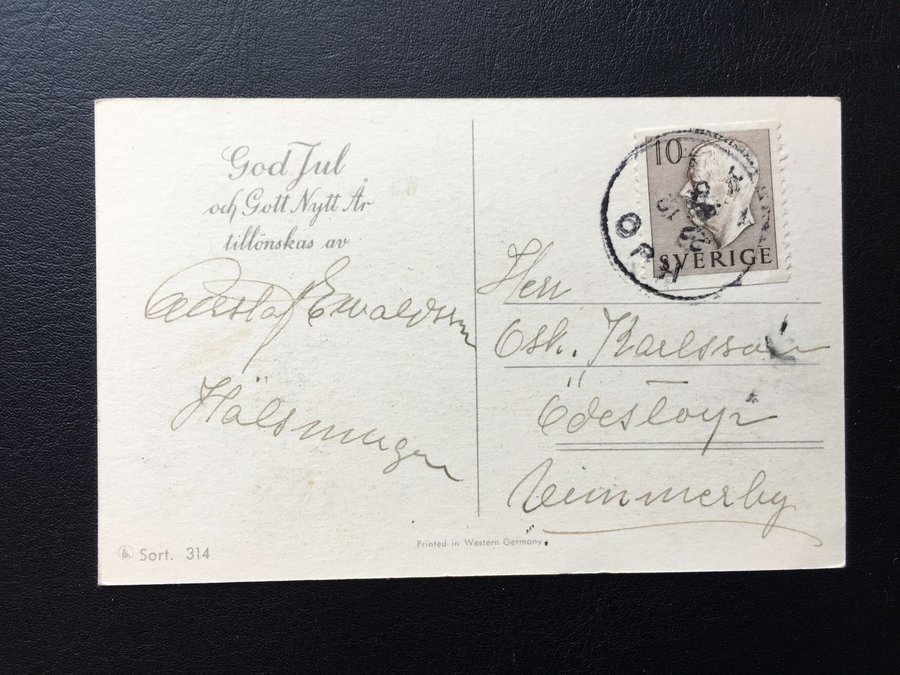 God Jul
och Gott Nytt År
tillönskas av
Gustaf Ewaldsson
Hälsningar
Sort. 314
Printed in Western Germany
10
SVERIGE
Herr
Osk. Karlsson
Ödestorp
Vimmerby